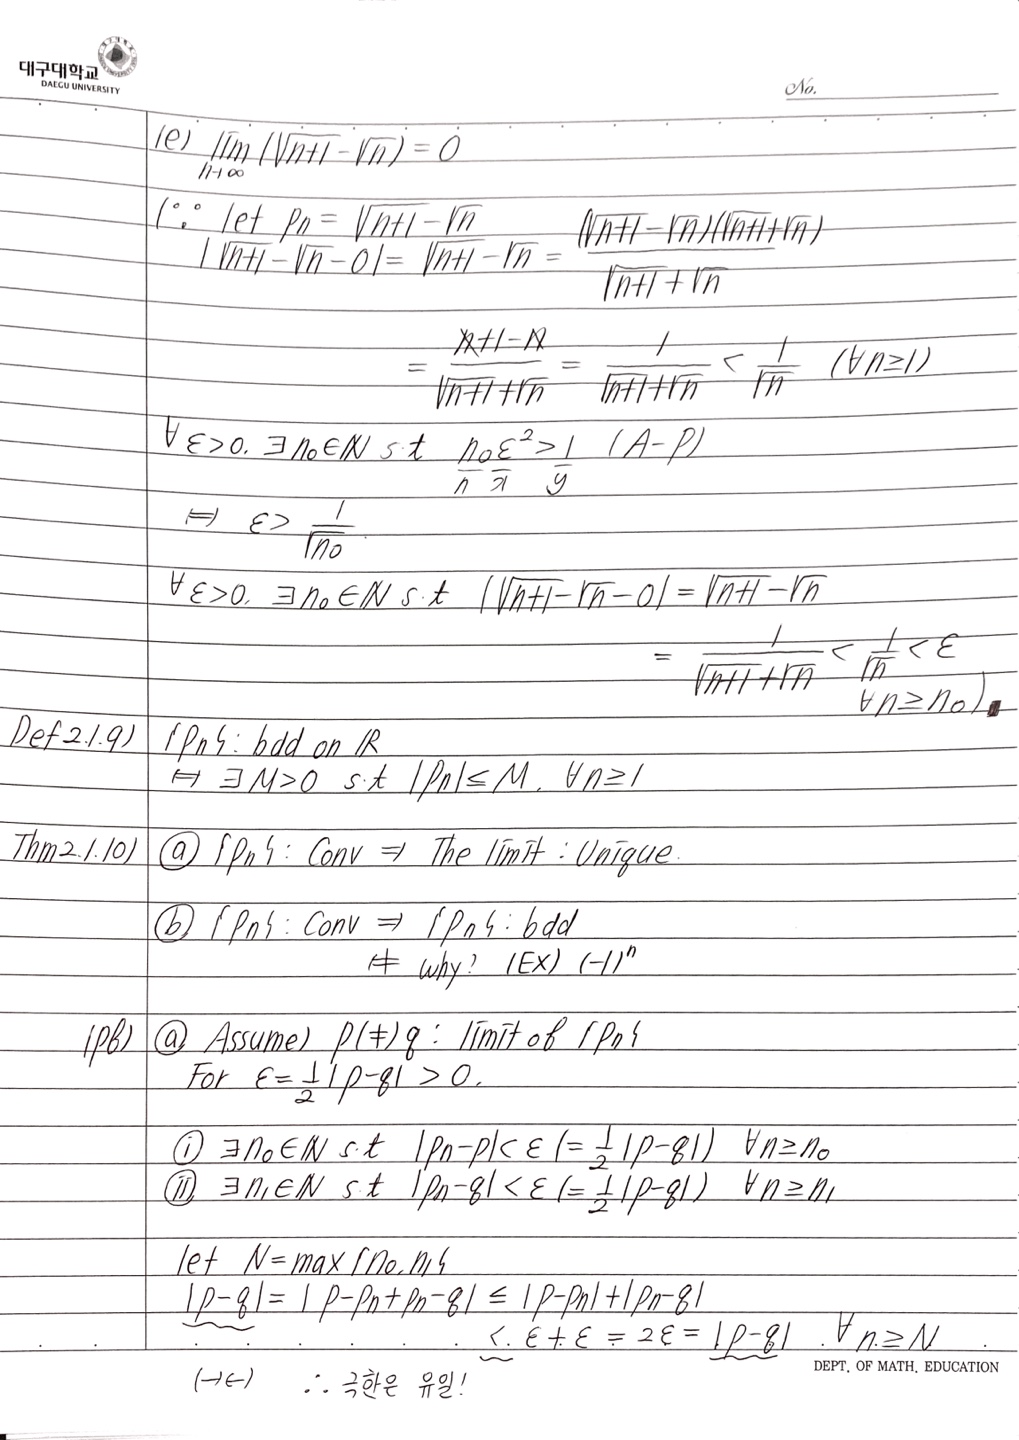 대구대학교
DAEGU UNIVERSITY
No.
(e) lim (√n+1 - √n) = 0
n→∞
(∵ let pn = √n+1 - √n
|√n+1 - √n - 0| = √n+1 - √n = (√n+1 - √n)(√n+1 + √n) / √n+1 + √n
= n+1-n / √n+1 + √n = 1 / √n+1 + √n < 1/√n (∀n≥1)
∀ε>0. ∃n₀∈ℕ s.t n₀ε² > 1 (A-P)
n x y
⇔ ε > 1/√n₀
∀ε>0. ∃n₀∈ℕ s.t |√n+1 - √n - 0| = √n+1 - √n
= 1 / √n+1 + √n < 1/√n < ε
∀n≥n₀).
Def 2.1.9) {pn} : bdd on ℝ
⇔ ∃M>0 s.t |pn| ≤ M. ∀n≥1
Thm 2.1.10) ⓐ {pn} : Conv ⇒ The limit : Unique.
ⓑ {pn} : Conv ⇒ {pn} : bdd
⇍ why? (EX) (-1)ⁿ
(pf) ⓐ Assume) p(≠)q : limit of {pn}
For ε = 1/2 |p-q| > 0.
ⓘ ∃n₀∈ℕ s.t |pn-p| < ε (= 1/2 |p-q|) ∀n≥n₀
ⓘⓘ ∃n₁∈ℕ s.t |pn-q| < ε (= 1/2 |p-q|) ∀n≥n₁
let N = max{n₀, n₁}
|p-q| = |p-pn+pn-q| ≤ |p-pn| + |pn-q|
< ε + ε = 2ε = |p-q| . ∀n≥N
DEPT. OF MATH. EDUCATION
(→←) ∴ 극한은 유일!